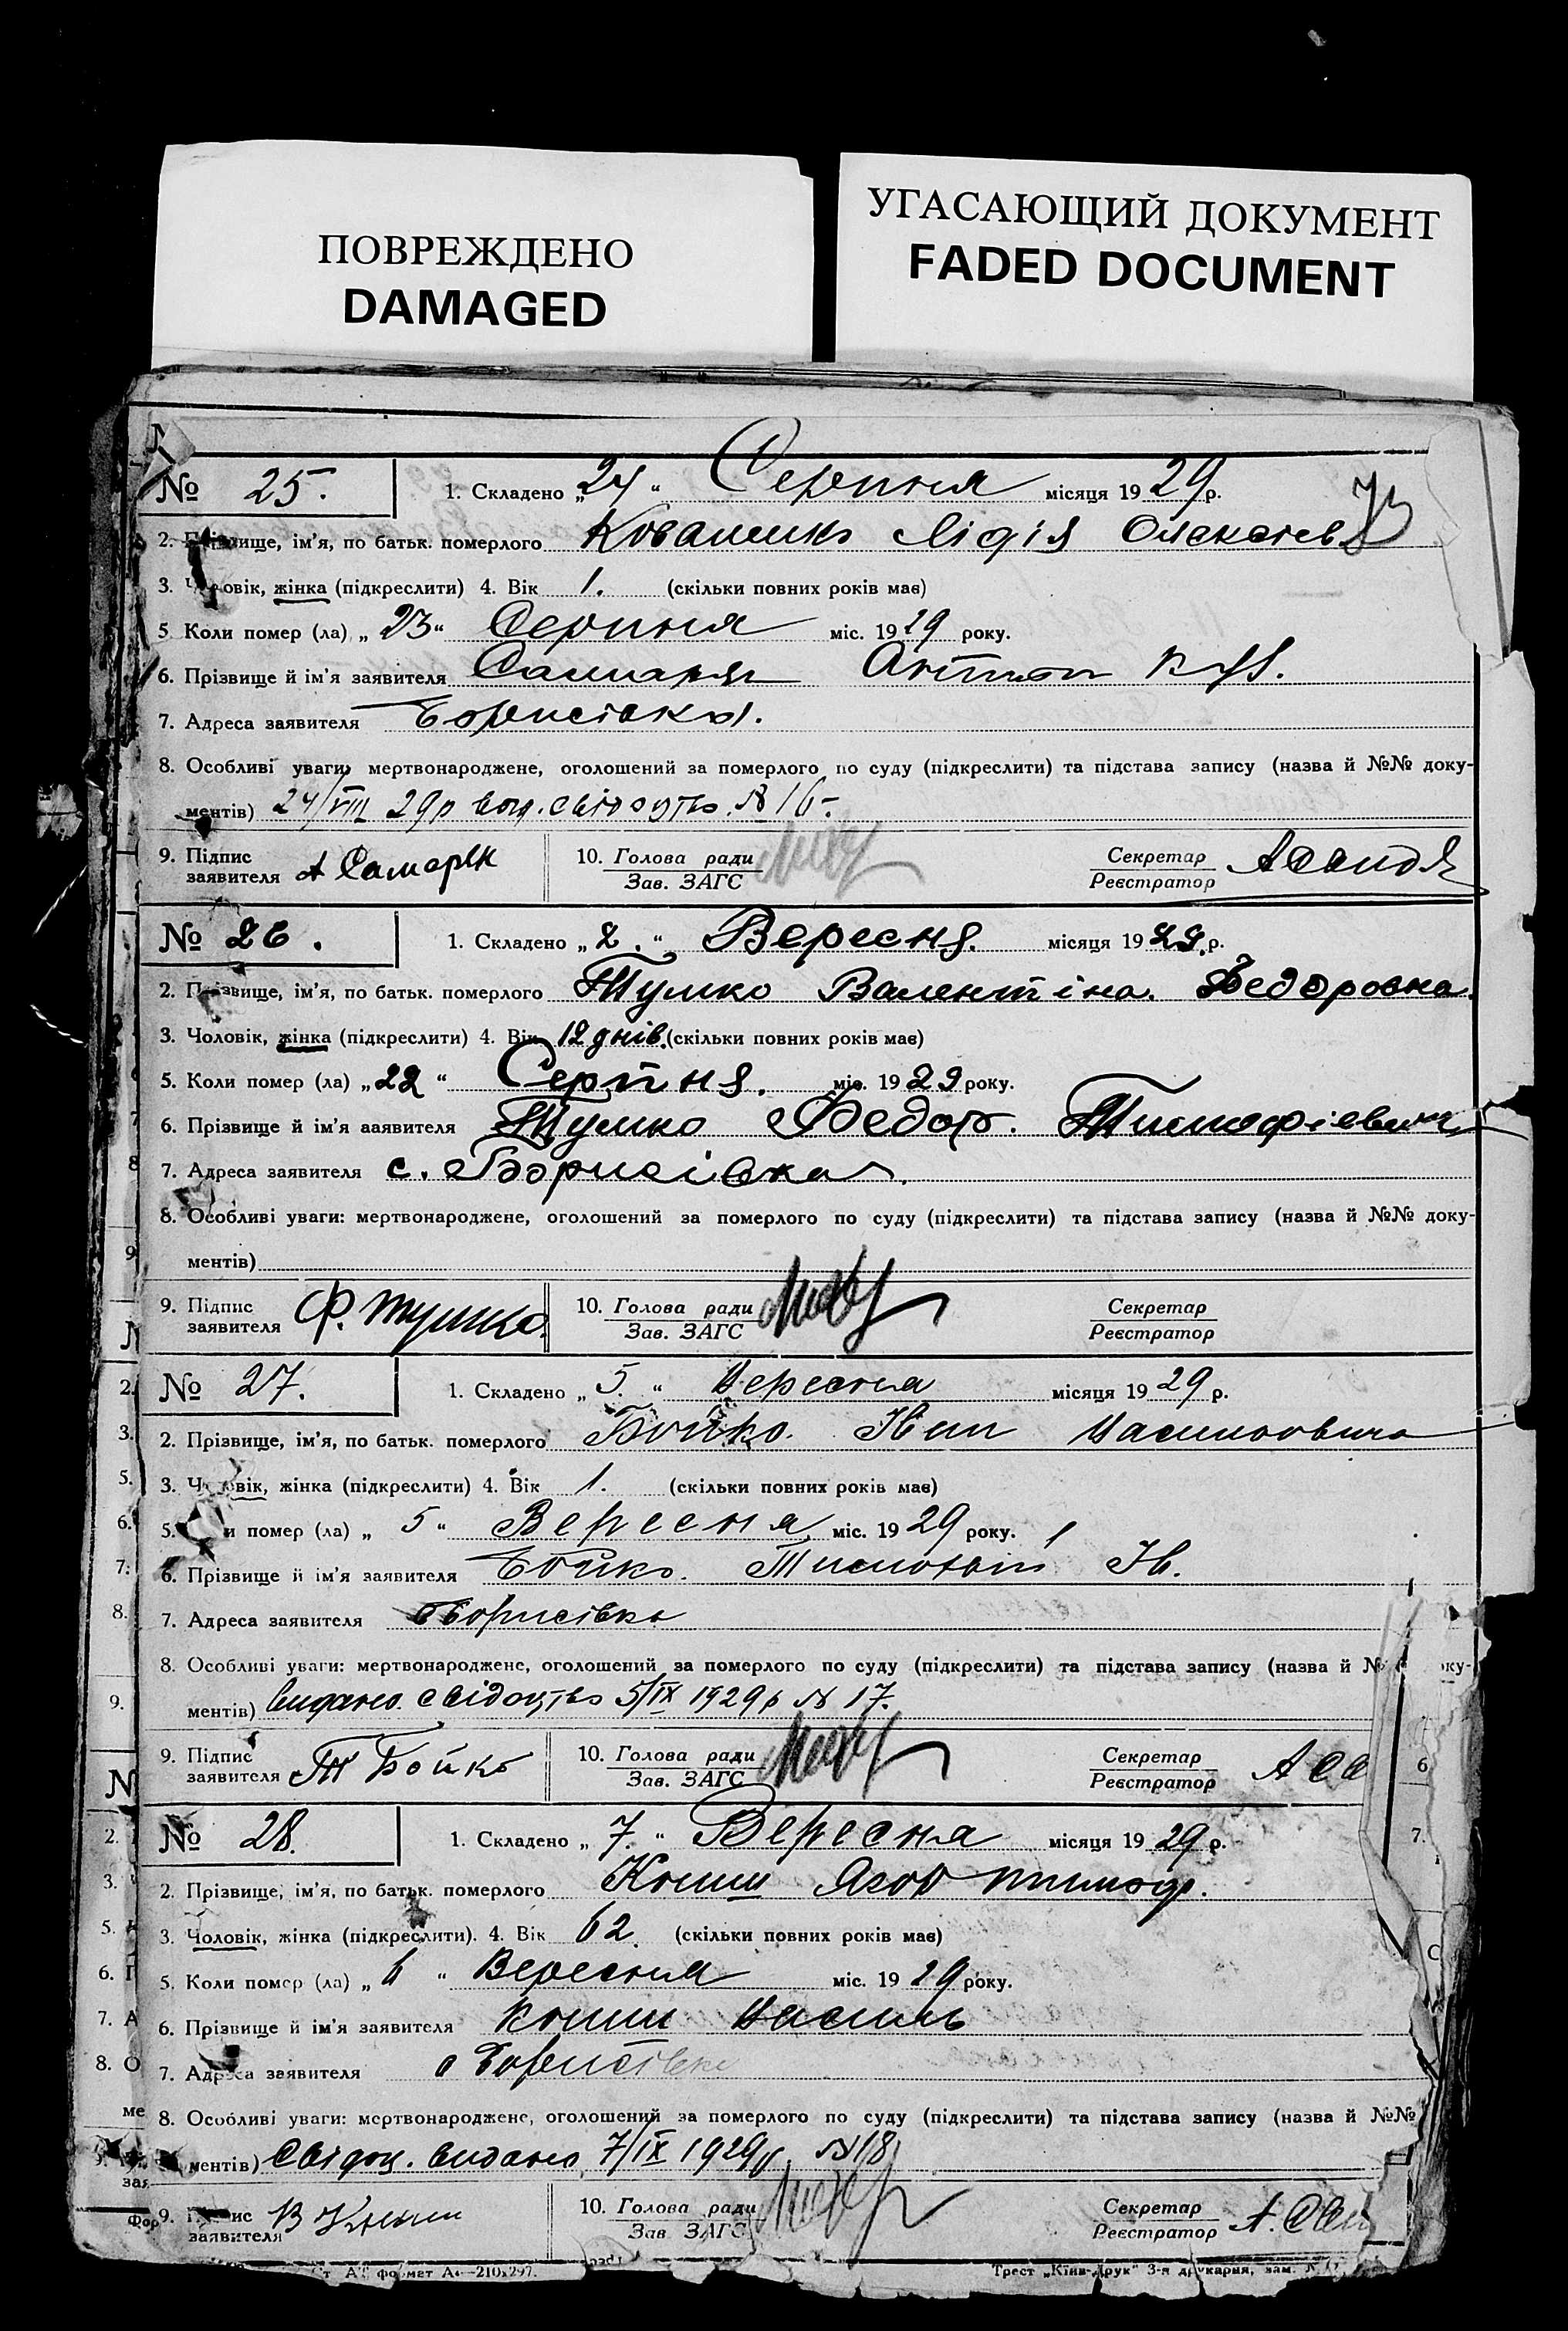 ПОВРЕЖДЕНО
DAMAGED
УГАСАЮЩИЙ ДОКУМЕНТ
FADED DOCUMENT
73
№ 25. 1. Складено „24“ Серпня місяця 1929р.
2. Прізвище, ім'я, по батьк. померлого Коваленко Лідія
3. Чоловік, жінка (підкреслити) 4. Вік 1. (скільки повних років має)
5 Коли помер (ла) „23“ Серпня міс. 1929 року.
6. Прізвище й ім'я заявителя Самаряк Антон
7. Адреса заявителя Борисівка.
8. Особливі уваги: мертвонароджене, оголошений за померлого по суду (підкреслити) та підстава запису (назва й №№ доку-
ментів) 24/VIII 29р свідоцтво №16
9. Підпис заявителя А Самаряк 10. Голова ради Зав. ЗАГС Секретар Реєстратор
№ 26. 1. Складено „2.“ Вересня. місяця 1929.р.
2. Прізвище, ім'я, по батьк. померлого Тушко Валентіна. Федоровна.
3. Чоловік, жінка (підкреслити) 4. Вік 12 днів. (скільки повних років має)
5. Коли помер (ла) „22“ Серпня. міс. 1929 року.
6. Прізвище й ім'я заявителя Тушко Федор. Тимофієвич
7. Адреса заявителя с. Борисівка.
8. Особливі уваги: мертвонароджене, оголошений за померлого по суду (підкреслити) та підстава запису (назва й №№ доку-
ментів)
9. Підпис заявителя Ф. Тушко. 10. Голова ради Зав. ЗАГС Секретар Реєстратор
№ 27. 1. Складено „5.“ Вересня місяця 1929 р.
2. Прізвище, ім'я, по батьк. померлого Бойко.
3. Чоловік, жінка (підкреслити) 4. Вік 1. (скільки повних років має)
5. Коли помер (ла) „5“ Вересня міс. 1929 року.
6. Прізвище й ім'я заявителя Бойко. Ів.
7. Адреса заявителя Борисівка
8. Особливі уваги: мертвонароджене, оголошений за померлого по суду (підкреслити) та підстава запису (назва й № доку-
ментів) Видано свідоцтво 5/IX 1929р № 17.
9. Підпис заявителя Т Бойко 10. Голова ради Зав. ЗАГС Секретар Реєстратор
№ 28. 1. Складено „7.“ Вересня місяця 1929 р.
2. Прізвище, ім'я, по батьк. померлого Книш Яков Тимоф.
3. Чоловік, жінка (підкреслити). 4. Вік 62. (скільки повних років має)
5. Коли помер (ла) „6“ Вересня міс. 1929 року.
6. Прізвище й ім'я заявителя Книш Василь
7. Адреса заявителя с Борисівка
8. Особливі уваги: мертвонароджене, оголошений за померлого по суду (підкреслити) та підстава запису (назва й №№
ментів) Свідоц. видано 7/IX 1929р №18
9. Підпис заявителя В Книш 10. Голова ради Зав. ЗАГС Секретар Реєстратор
формат А4—210х297. Трест „Київ-Друк“ 3-я друкарня, зам.